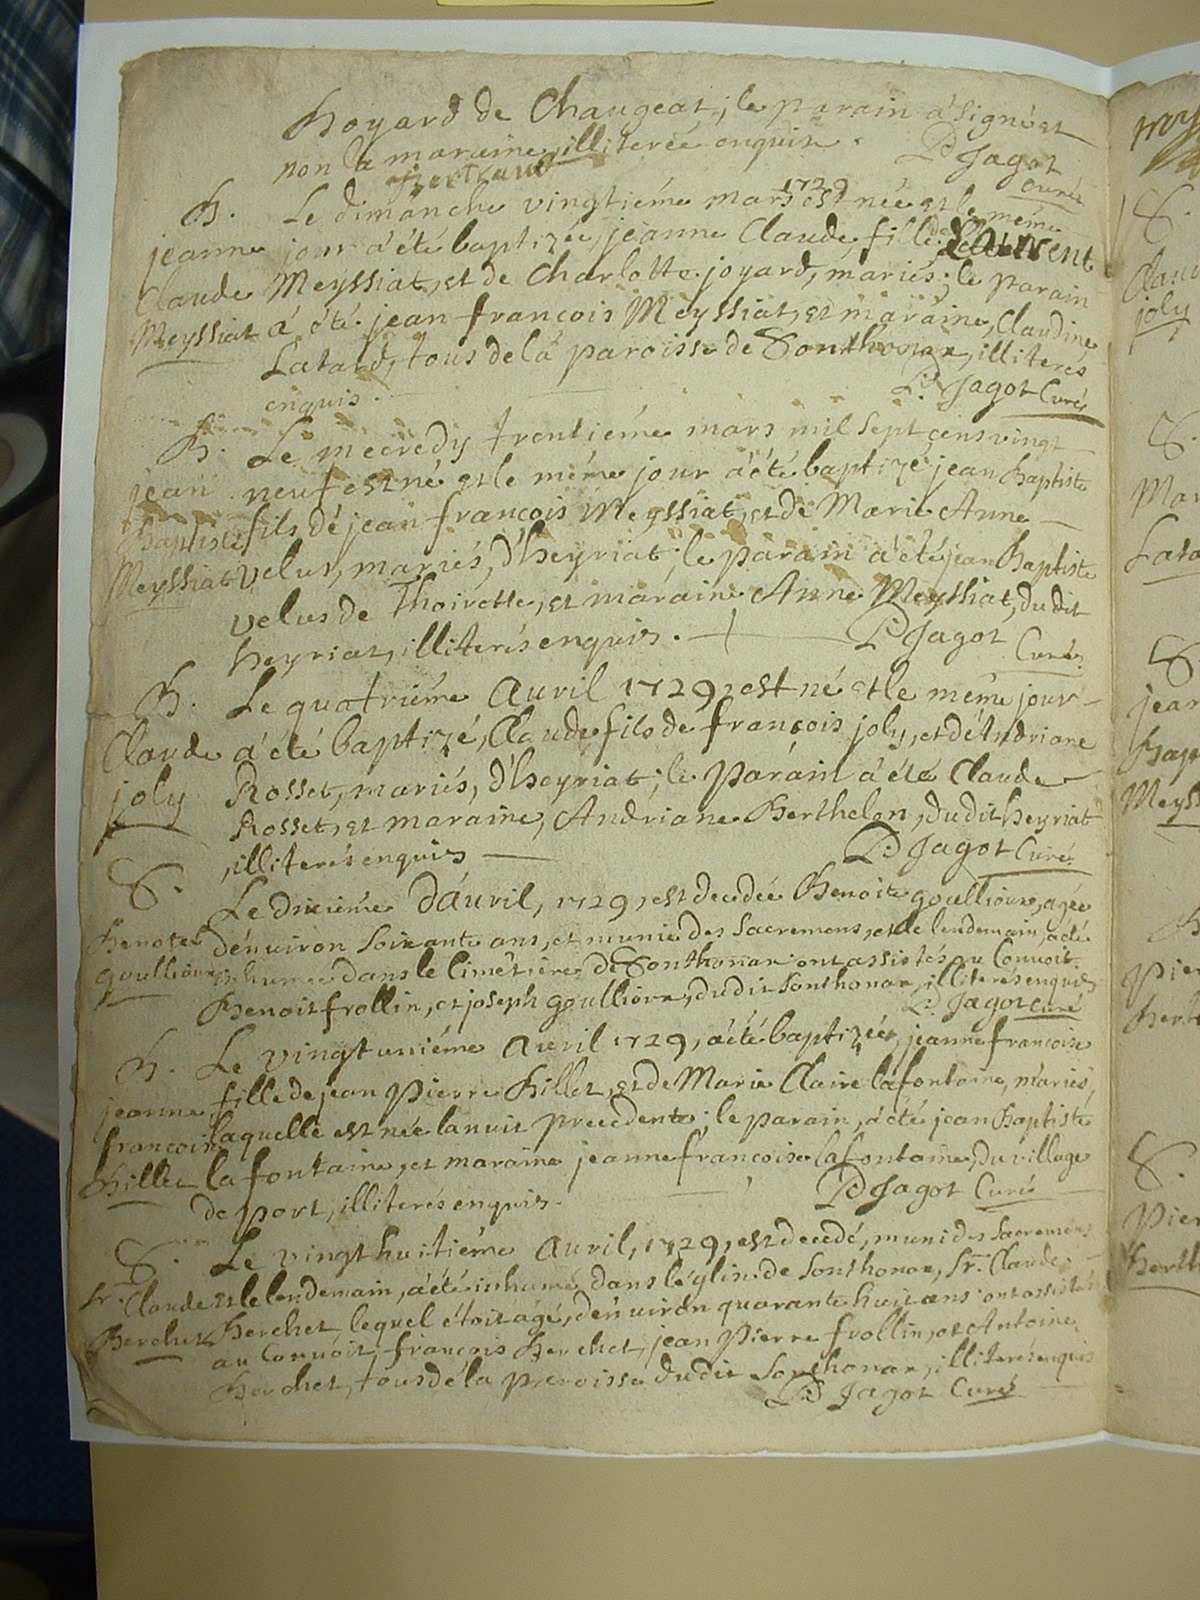 Boyard de Chaugeat, le parain a signé et
non la maraine, illiterée enquise.
P: Jagot
Curé
Bertrand
B. Le dimanche vingtiéme mars 1729 est née et le méme
jeanne jour a été baptizée, jeanne Claude, fille de Laurent
Claude Meyssiat, et de Charlotte joyard, mariés; le parain
Meyssiat a été jean francois Meyssiat, et maraine, Claudine
Latard, tous de la paroisse de Sonthonax, illiterés
enquis. P: Jagot Curé
B. Le mecredy trentiéme mars mil sept cens vingt
jean neuf est né et le méme jour a été baptizé jean baptiste
baptiste fils de jean francois Meyssiat, et de Marie Anne
Meyssiat velus, mariés, d'heyriat; le parain a été jean baptiste
velus de Thoirette, et maraine Anne Meyssiat, du dit
heyriat, illiterés enquis. P: Jagot
Curé
B. Le quatriéme Auril 1729, est né et le méme jour
Claude a été baptizé, Claude fils de francois joly, et d'Andriane
joly Rosset, mariés, d'heyriat; le parain a été Claude
Rosset, et maraine, Andriane Berthelon, du dit heyriat
illiterés enquis P: Jagot Curé
S. Le dixiéme d'auril, 1729, est decedée Benoite goullioux, agée
Benoite d'enuiron soixante ans, et munie des sacremens, et le lendemain, a été
goullioux inhumée dans le cimétiére de Sonthonax: ont assistés au Conuoit
Benoit frollin, et joseph goullioux, du dit Sonthonax, illiterés enquis
P: Jagot curé
B. Le vingt uniéme Auril 1729, a été baptizée, jeanne francoise
jeanne fille de jean pierre billet, et de Marie Claire lafontaine, mariés,
francoise laquelle est née la nuit precedente; le parain, a été jean baptiste
billet lafontaine, et maraine jeanne francoise lafontaine, du village
de port, illiterés enquis. P: Jagot Curé
S. Le vingt huitiéme Auril, 1729, est decedé, muni des sacremens
Sr. Claude et le lendemain, a été inhumé, dans l'églize de Sonthonax, Sr. Claude
Berchet Berchet, lequel étoit agé, d'enuiron quarante huit ans: ont assistés
au Conuoit, francois Berchet, jean pierre frollin, et Antoine
Berchet, tous de la paroisse du dit Sonthonax, illiterés enquis
P: Jagot Curé
S.
joly
S.
S.
B.
S.